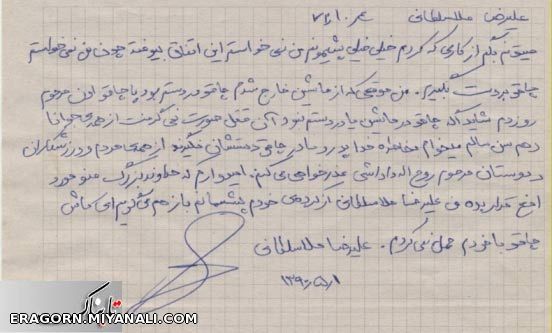 علیرضا ملاسلطانی ۷۴/۱۰/۶
میتونم بگم از کاری که کردم خیلی خیلی پشیمونم من نمی خواستم این اتفاق بیوفته چون من نمی خواستم
چاقو بدست بگیرم. من موقعی که از ماشین خارج شدم چاقو در دستم بود با چاقو اون مرحوم
رو زدم شاید اگه چاقو در ماشین یا در دستم نبود آن قتل صورت نمی گرفت از همه ی جوانا
و هم سن سالم میخوام بخاطره خدا پدر و مادر چاقو دستشان نگیرند از همه ی مردم و ورزشکاران
و دوستان مرحوم روح اله داداشی عذر خواهی می کنم. امیدوارم که خداوند بزرگ منو مورد
عفو قرار بده من علیرضا ملاسلطانی از کرده ی خودم پشیمانم باز هم می گویم ای کاش
چاقو با خودم حمل نمی کردم. علیرضا ملاسلطانی
۱۳۹۰/۵/۱
تابناک
ERAGORN.MIYANALI.COM